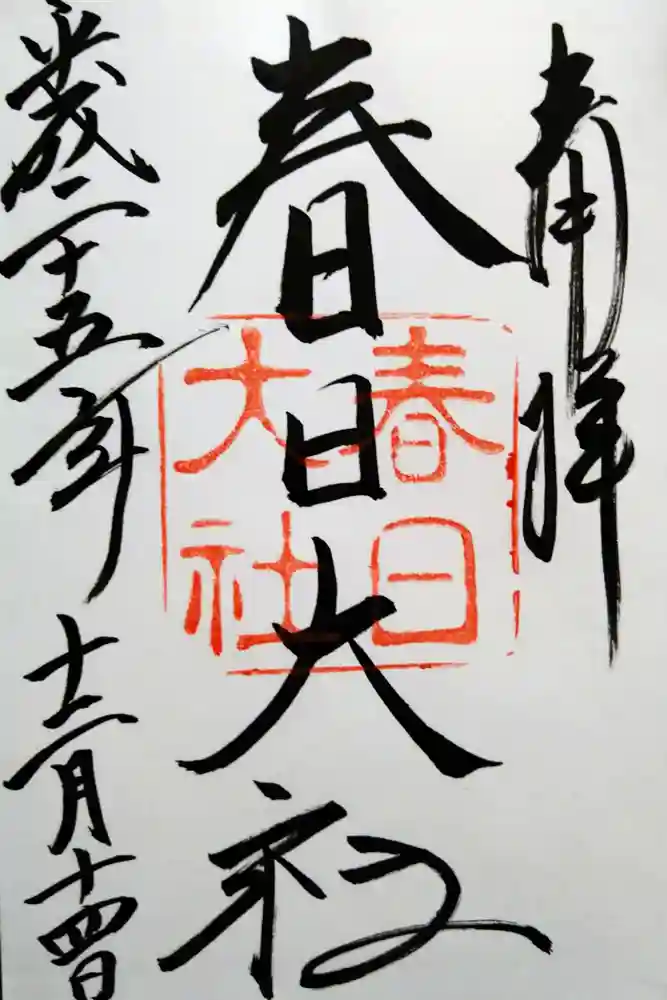 奉拝
春日大社
春日
大社
平成二十五年十二月十四日